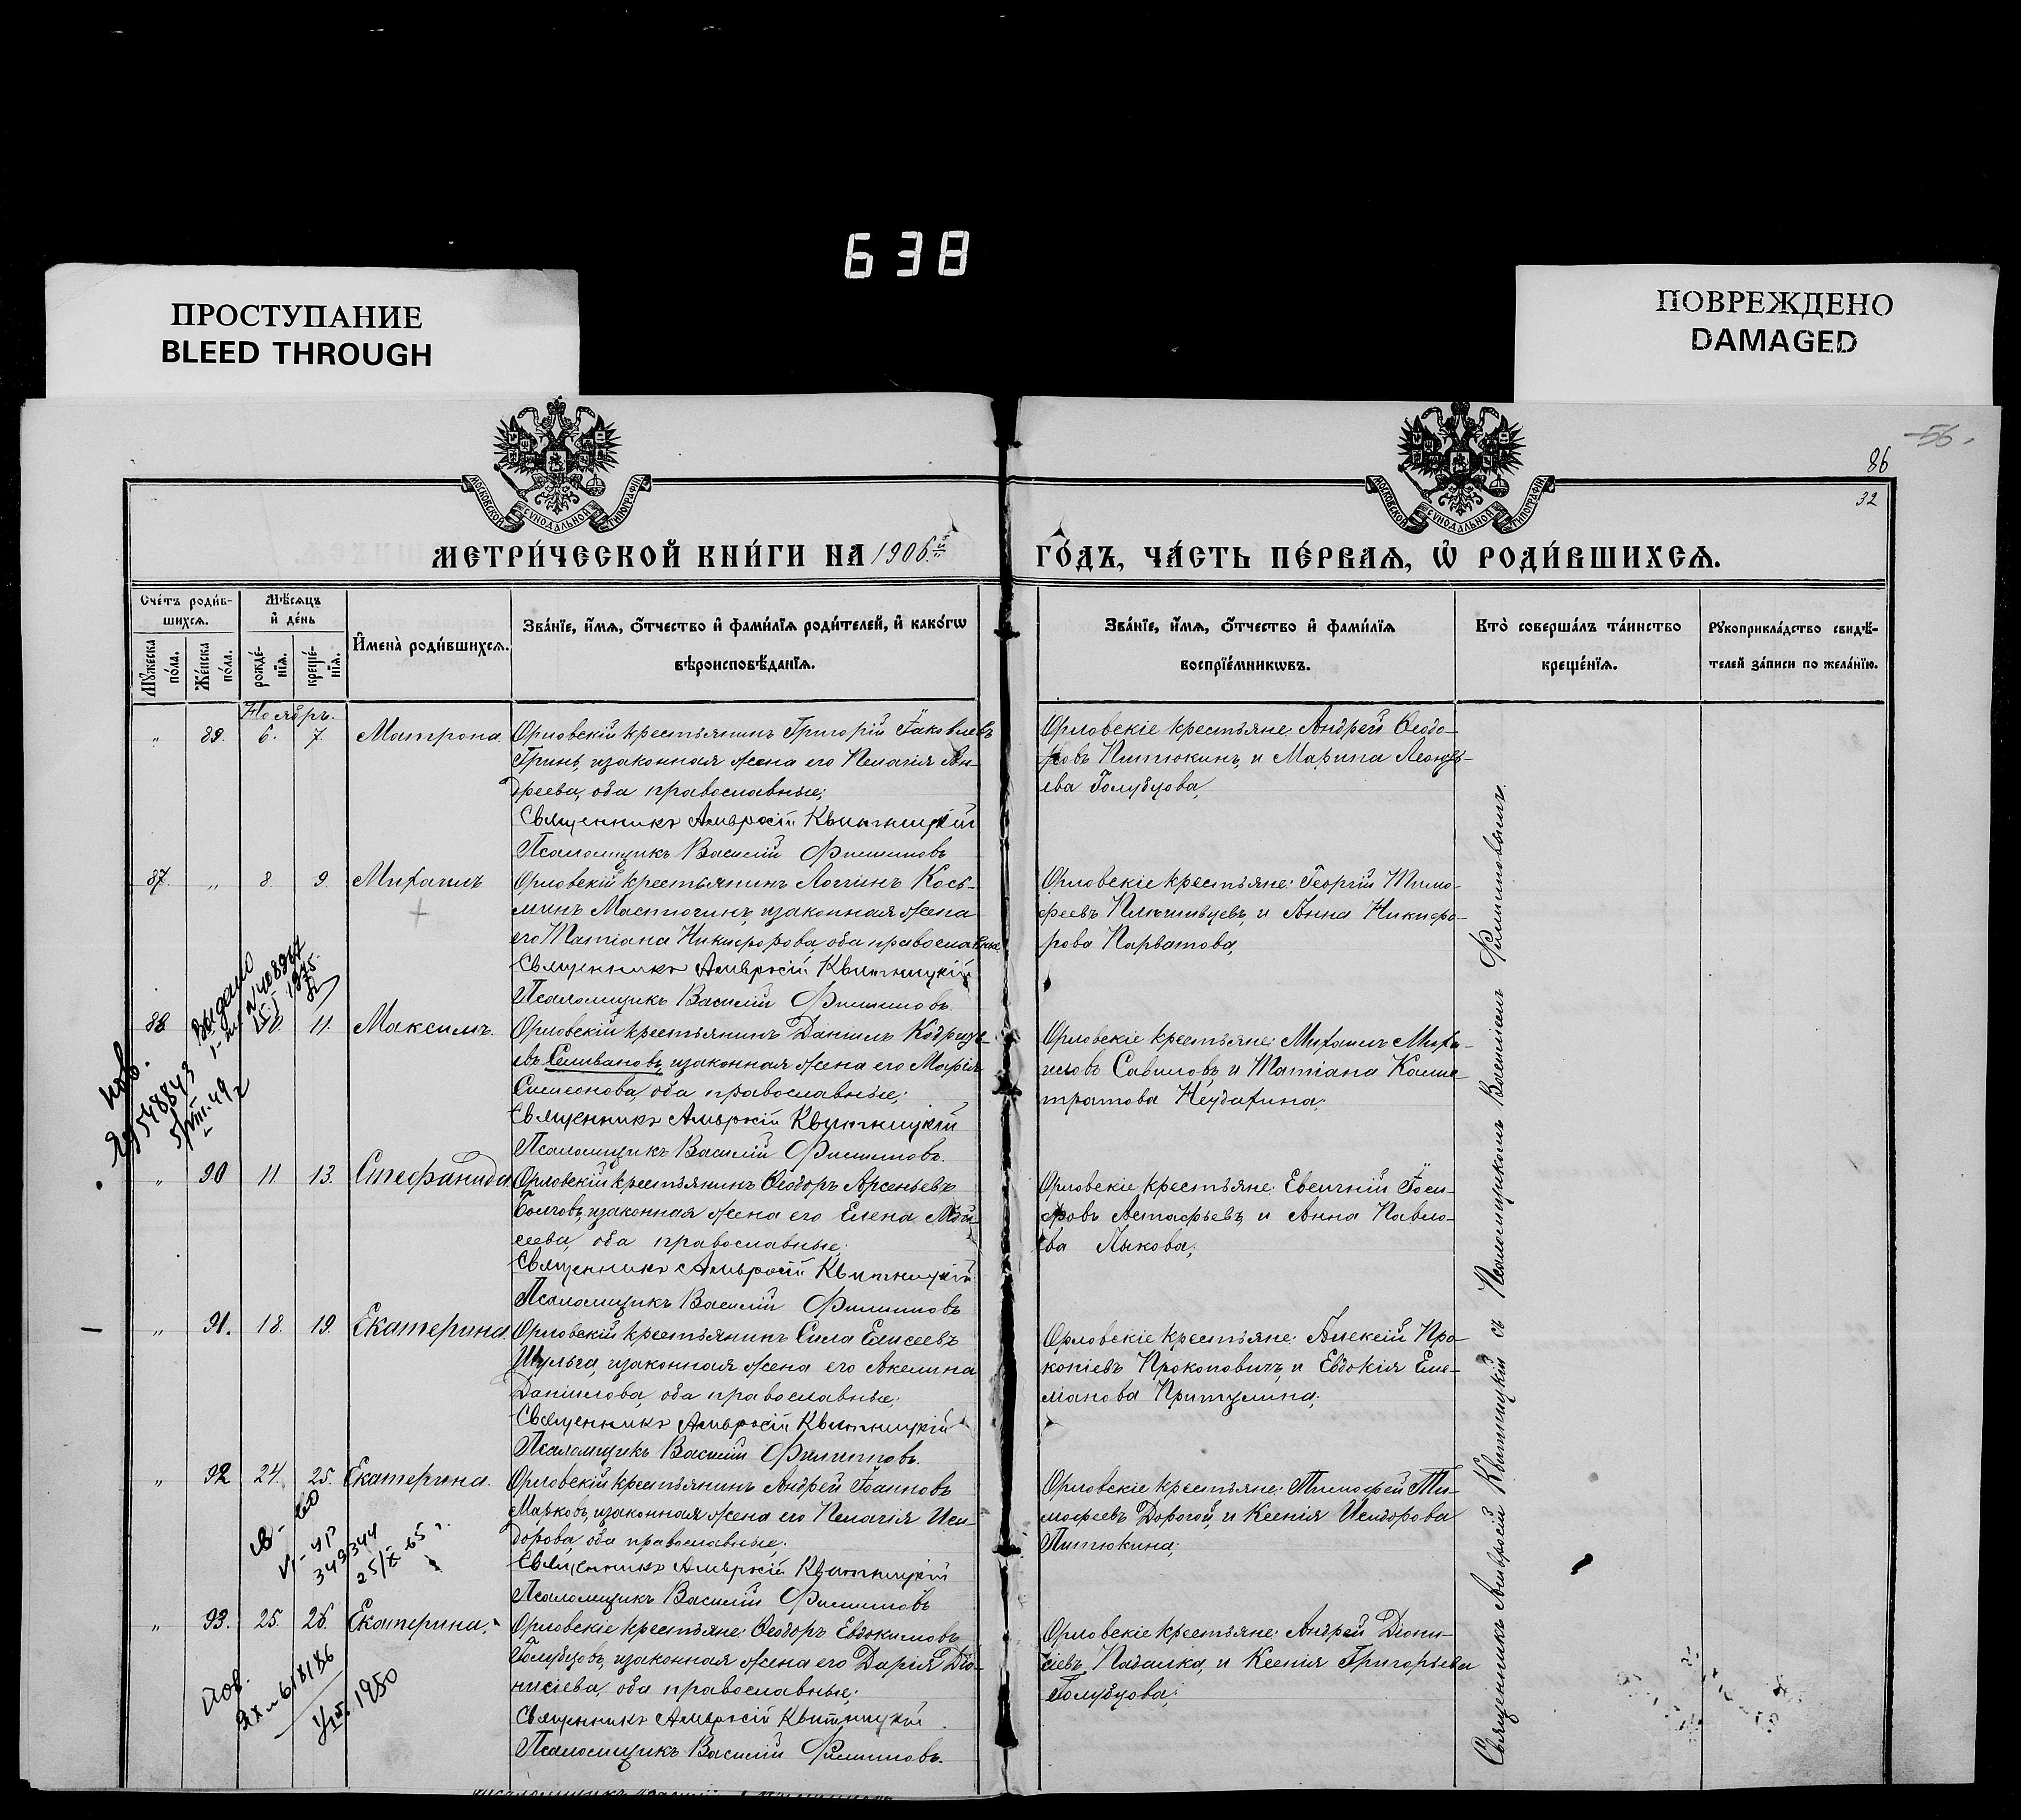 638
ПРОСТУПАНИЕ
BLEED THROUGH
ПОВРЕЖДЕНО
DAMAGED
МОСКОВСКОЙ СѴНОДАЛЬНОЙ ТИПОГРАФІИ
МОСКОВСКОЙ СѴНОДАЛЬНОЙ ТИПОГРАФІИ
56.
86
32
МЕТРИ́ЧЕСКОЙ КНИ́ГИ НА 1906й
ГО́ДЪ, ЧА́СТЬ ПЕ́РВАѦ, Ѡ҆ РОДИ́ВШИХСѦ.
Сче́тъ роди́в-
шихсѧ.
Мꙋ́жеска по́ла.
Же́нска по́ла.
Мѣ́сѧцъ
и҆ де́нь
рожде́-нїѧ.
креще́-нїѧ.
И҆мена̀ роди́вшихсѧ.
Зва́нїе, и҆́мѧ, ѻ҆́тчество и҆ фами́лїѧ роди́телей, и҆ како́гѡ
вѣроисповѣ́данїѧ.
Зва́нїе, и҆́мѧ, ѻ҆́тчество и҆ фами́лїѧ
воспрїе́мникѡвъ.
Кто̀ соверша́лъ та́инство
креще́нїѧ.
Рꙋкоприкла́дство свидѣ́-
телей за́писи по жела́нїю.
Ноябрь.
„ 89. 6. 7. Матрона.
Орловскій крестьянинъ Григорій Іаковлевъ
Гринь, и законная жена его Пелагія Ан-
дреева, оба православные;
Священникъ Амвросій Квитницкій
Псаломщикъ Василій Филипповъ
Орловскіе крестьяне: Андрей Ѳеодо-
ровъ Питюкинъ, и Марина Леонть-
ева Голубцова,
87. „ 8. 9. Михаилъ
Орловскій крестьянинъ Логгинъ Кось-
минъ Мастюгинъ, и законная жена
его Татіана Никифорова, оба православные
Священникъ Амвросій Квитницкій
Псаломщикъ Василій Филипповъ
Орловскіе крестьяне: Георгій Тимо-
феевъ и Анна Никифо-
рова Парватова,
Выдано
15.I 1975.
88 11. Максимъ.
Орловскій крестьянинъ Даніилъ Кодрать-
евъ Селивановъ, и законная жена его Марія
Симеонова, оба православные;
Священникъ Амвросій Квитницкій
Псаломщикъ Василій Филипповъ.
Орловскіе крестьяне: Михаилъ Миха-
иловъ Савиловъ, и Татіана Калис-
тратова Неудахина;
пов.
548843
5/VIII.49 г
„ 90 11 13. Стефанида
Орловскій крестьянинъ Ѳеодоръ Арсеньевъ
Болговъ, и законная жена его Елена Мои-
сеева, оба православные;
Священникъ Амвросій Квитницкій
Псаломщикъ Василій Филипповъ
Орловскіе крестьяне: Евсигній Іоси-
фовъ Астафьевъ, и Анна Павло-
ва Лыкова;
„ 91. 18. 19. Екатерина
Орловскій крестьянинъ Сила Елисеевъ
Шульга, и законная жена его Акелина
Даніилова, оба православные;
Священникъ Амвросій Квитницкій
Псаломщикъ Василій Филипповъ.
Орловскіе крестьяне: Алексій Про-
копіевъ Прокоповичъ, и Евдокія Еме-
ліанова Притулина;
„ 92 24. 25. Екатерина.
Орловскій крестьянинъ Андрей Іоанновъ
Марковъ, и законная жена его Пелагія Иси-
дорова, оба православные;
Священникъ Амвросій Квитницкій
Псаломщикъ Василій Филипповъ
Орловскіе крестьяне: Тимофей Ти-
мофеевъ Дорогой, и Ксенія Исидорова
Питюкина;
349344
25/X-65 г.
„ 93. 25. 26. Екатерина.
Орловскіе крестьяне: Ѳеодоръ Евдокимовъ
Голубцовъ, и законная жена его Дарія Діо-
нисіева, оба православные;
Священникъ Амвросій Квитницкій.
Псаломщикъ Василій Филипповъ.
Орловскіе крестьяне: Андрей Діони-
сіевъ Падалка, и Ксенія Григорьева
Голубцова;
пов.
618186
1950
Священникъ Амвросій Квитницкій съ Псаломщикомъ Василіемъ Филипповымъ.